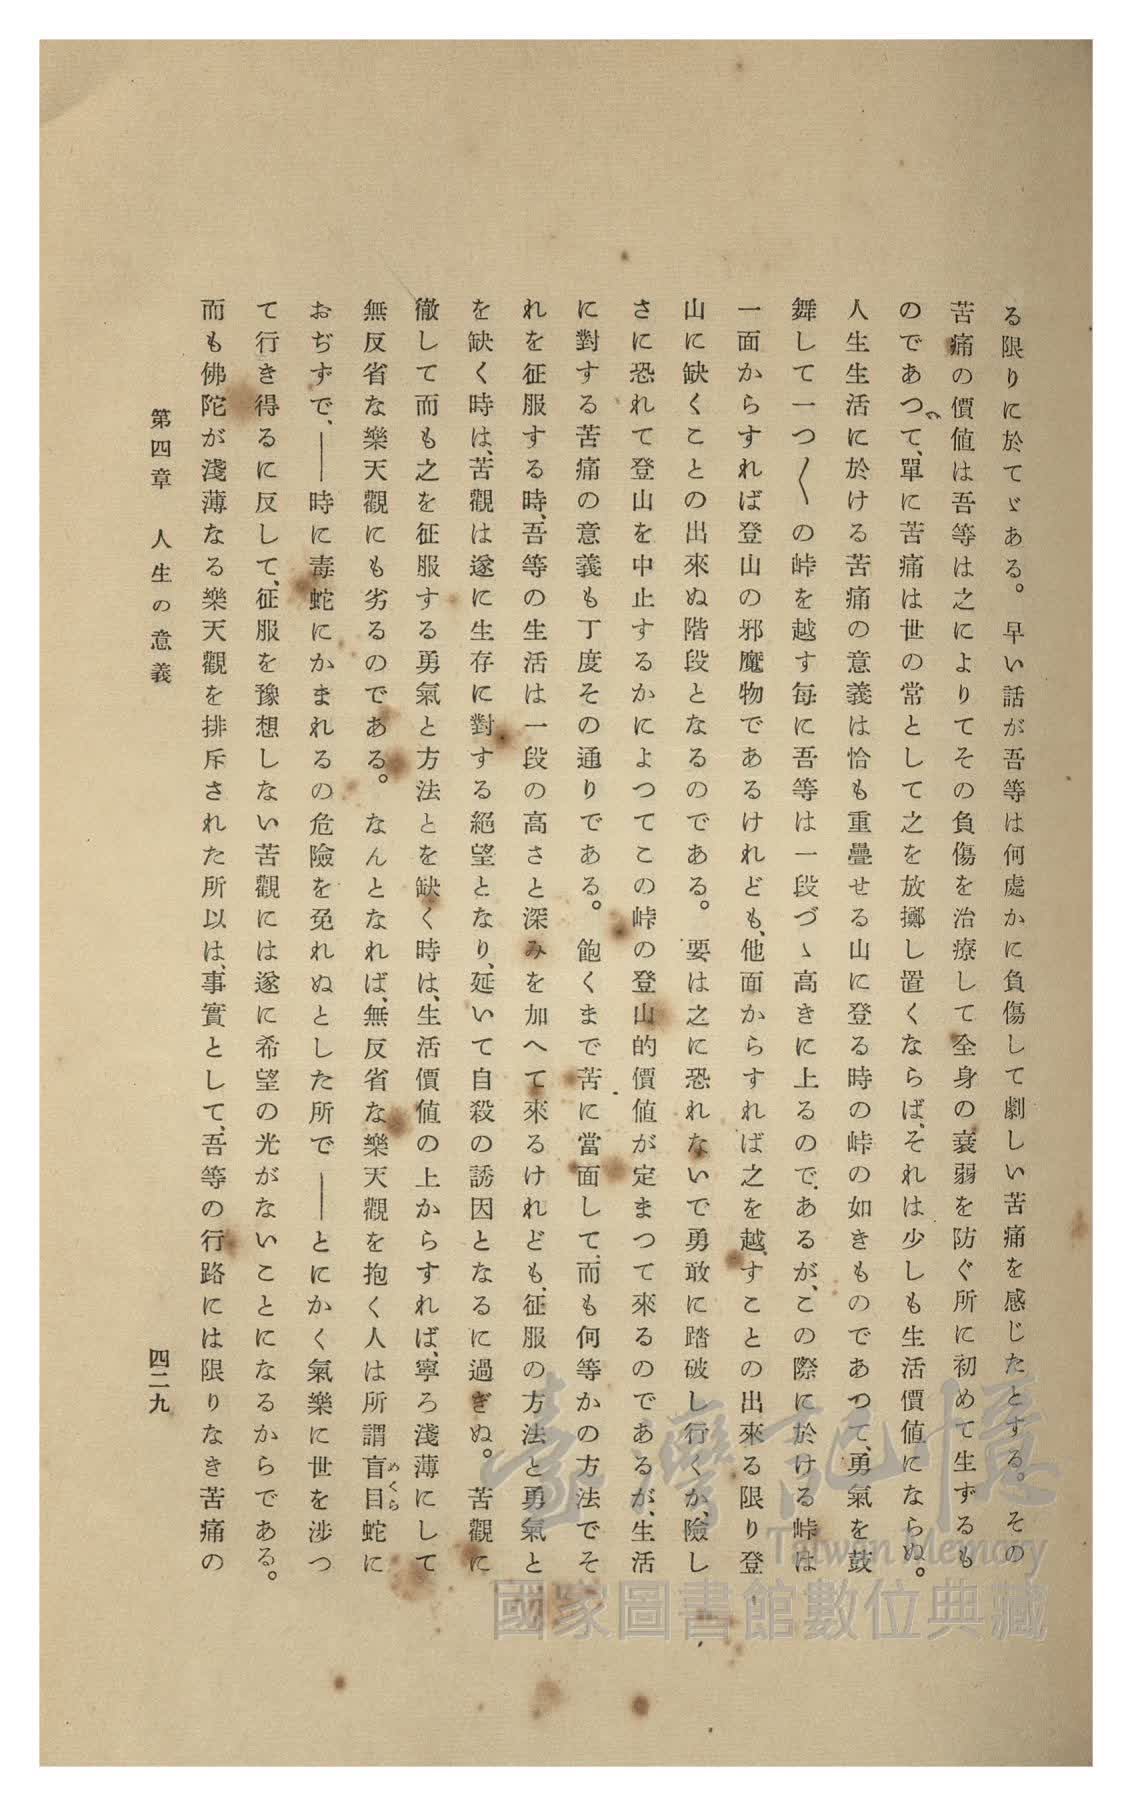 る限りに於てゞある。早い話が吾等は何處かに負傷して劇しい苦痛を感じたとする。その
苦痛の價値は吾等は之によりてその負傷を治療して全身の衰弱を防ぐ所に初めて生ずるも
のであつて、單に苦痛は世の常として之を放擲し置くならば、それは少しも生活價値にならぬ。
人生生活に於ける苦痛の意義は恰も重疊せる山に登る時の峠の如きものであつて、勇氣を鼓
舞して一つ〱の峠を越す毎に吾等は一段づゝ高きに上るので、あるが、この際に於ける峠は
一面からすれば登山の邪魔物であるけれども、他面からすれば之を越すことの出來る限り登
山に缺くことの出來ぬ階段となるのである。要は之に恐れないで勇敢に踏破し行くか、險し
さに恐れて登山を中止するかによつてこの峠の登山的價値が定まつて來るのであるが、生活
に對する苦痛の意義も丁度その通りである。飽くまで苦に當面して、而も何等かの方法でそ
れを征服する時、吾等の生活は一段の高さと深みを加へて來るけれども、征服の方法と勇氣と
を缺く時は、苦觀は遂に生存に對する絕望となり、延いて自殺の誘因となるに過ぎぬ。苦觀に
徹して而も之を征服する勇氣と方法とを缺く時は、生活價値の上からすれば、寧ろ淺薄にして
無反省な樂天觀にも劣るのである。なんとなれば、無反省な樂天觀を抱く人は所謂盲目蛇に
めくら
おぢずで、――時に毒蛇にかまれるの危險を免れぬとした所で――とにかく氣樂に世を涉つ
て行き得るに反して、征服を豫想しない苦觀には遂に希望の光がないことになるからである。
而も佛陀が淺薄なる樂天觀を排斥された所以は、事實として、吾等の行路には限りなき苦痛の
第四章 人生の意義
四二九
臺灣記憶
Taiwan Memory
國家圖書館數位典藏